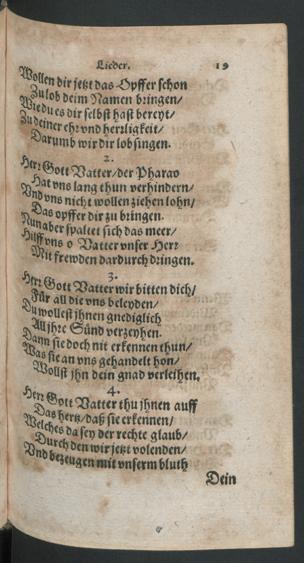 Lieder. 19
Wollen dir jetzt das Opffer schon
Zu lob deim Namen bringen/
Wie du es dir selbst hast bereyt/
Zu deiner ehr vnd herrligkeit/
Darumb wir dir lobsingen.
2.
Herr Gott Vatter/ der Pharao
Hat vns lang thun verhindern/
Vnd vns nicht wollen ziehen lohn/
Das opffer dir zu bringen.
Nun aber spaltet sich das meer/
Hilff vns o Vatter vnser Herr
Mit frewden dardurch dringen.
3.
Herr Gott Vatter wir bitten dich/
Für all die vns beleyden/
Du wollest jhnen gnediglich
All jhre Sünd verzeyhen.
Dann sie doch nit erkennen thun/
Was sie an vns gehandelt hon/
Wollst jhn dein gnad verleihen.
4.
Herr Gott Vatter thu jhnen auff
Das hertz/ daß sie erkennen/
Welches da sey der rechte glaub/
Durch den wir jetzt volenden/
Vnd bezeugen mit vnserm bluth
Dein